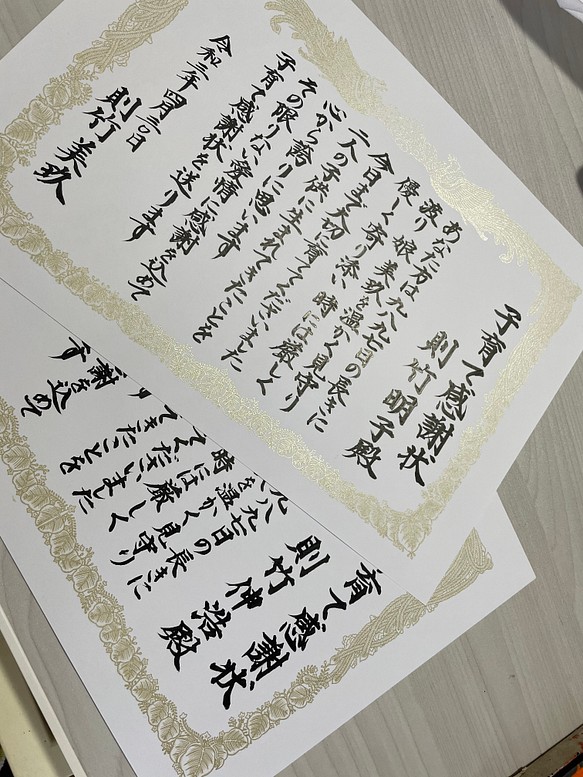 子育て感謝状
則竹明子殿
あなた方は九八九七日の長きに
渡り娘美玖を温かく見守り
優しく寄り添い時には厳しく
今日まで大切に育てくださいました
二人の子供に生まれてきたことを
心から誇りに思います
その限りない愛情に感謝を込めて
子育て感謝状を送ります
令和二年四月三〇日
則竹美玖
育て感謝状
則竹伸浩殿
九八九七日の長きに
を温かく見守り
時には厳しく
てくださいました
てきたことを
す
謝を込めて
す